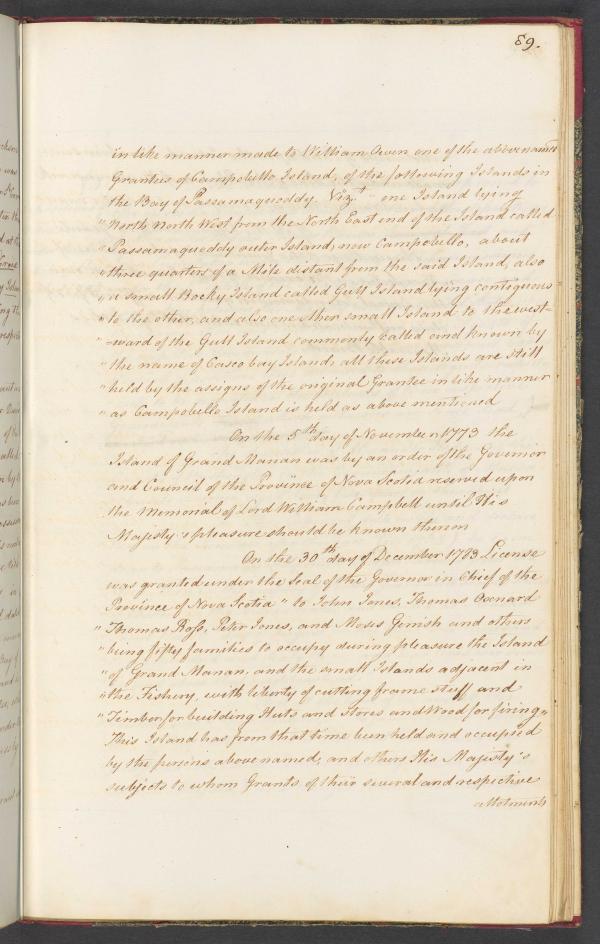 89.
in like manner made to William Owen one of the above named
Grantees of Campobello Island, of the following Islands in
the Bay of Passamaquoddy. Vizt. - one Island lying
" North North West from the North East end of the Island called
" Passamaquoddy outer Island, now Campobello, about
" three quarters of a Mile distant from the said Island, also
" a small Rocky Island called Gull Island lying contiguous
" to the other, and also one other small Island to the west=
" =ward of the Gull Island commonly called and known by
" the name of Casco bay Island, all these Islands are still
" held by the assigns of the original Grantee in like manner
" as Campobello Island is held as above mentioned
On the 5th day of November 1773 the
Island of Grand Manan was by an order of the Governor
and Council of the Province of Nova Scotia reserved upon
the Memorial of Lord William Campbell until His
Majesty's pleasure should be known thereon
On the 30th day of December 1783 License
was granted under the Seal of the Governor in Chief of the
Province of Nova Scotia " to John Jones, Thomas Oxnard
" Thomas Ross, Peter Jones, and Moses Gerish and others
" being fifty families to occupy during pleasure the Island
" of Grand Manan, and the small Islands adjacent in
" the Fishery, with liberty of cutting frame stuff and
" Timber for building Huts and Stores and Wood for firing"
This Island has from that time been held and occupied
by the persons above named, and others His Majesty's
subjects to whom Grants of their several and respective
allotments